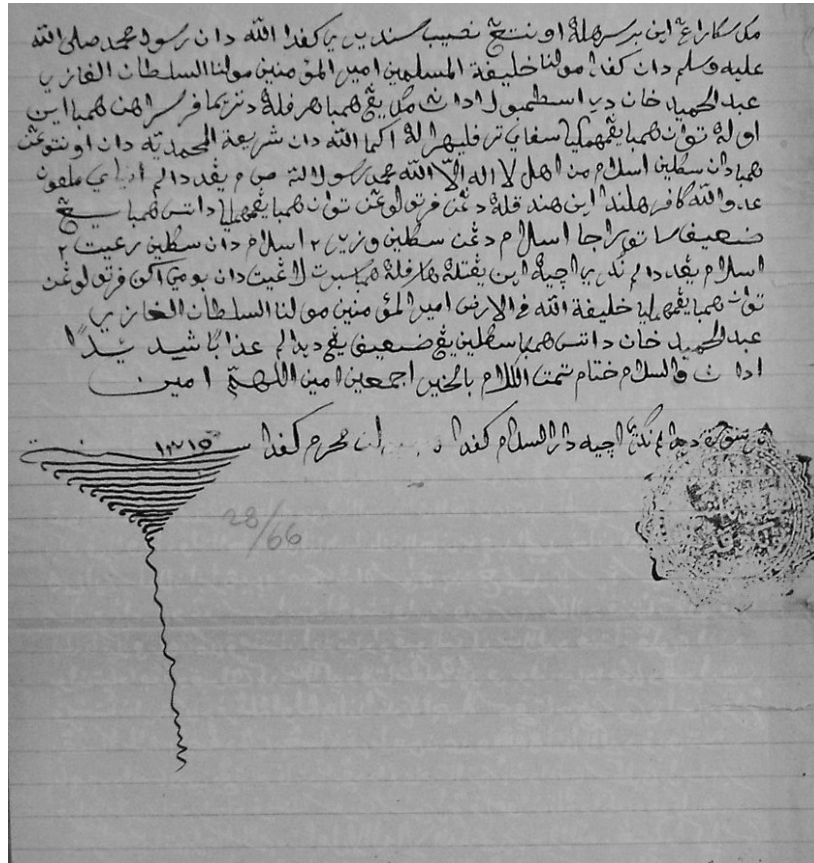 مک سکارڠ اين برسرهله اونتڠ نصيب سنديري کفد الله دان رسول محمد صلى الله
عليه وسلم دان کفد مولنا خليفة المسلمين امير المؤمنين مولنا السلطان الغازي
عبد الحميد خان دير اسطمبول ادان مک يڠ همبا هرفله دتريما
اوله توان همبا يڠمهملیا ترفليهراله اکما الله دان شريعة المحمديه دان اونتوڠن
همبا دان سکلين اسلام من اهل لا اله الا الله محمد رسول الله يڠد دالم
والله کافر هلندا اين هندقله دڠن فرتولوڠن توان همبا يڠمهملیا داتس همبا يڠ
ضعيف سات راجا اسلام دڠن سکلين وزير ٢ اسلام دان سکلين رعيت ٢
اسلام يڠد دالم نکري اچيه اين هارفله همبا سبرت لاڠيت دان بومي اکن فرتولوڠن
توان همبا يڠمهملیا خليفة الله في الارض امير المؤمنين مولنا السلطان الغازي
عبد الحميد خان داتس همبا سکلين يڠ ضعيف يڠ دالم عذابا شديدا
ادان والسلام ختام تمت الکلام بالخير اجمعين امين اللهم امين
دالم نکري اچيه دار السلام کفد محرم کفد سنة ١٣١٥
28/66